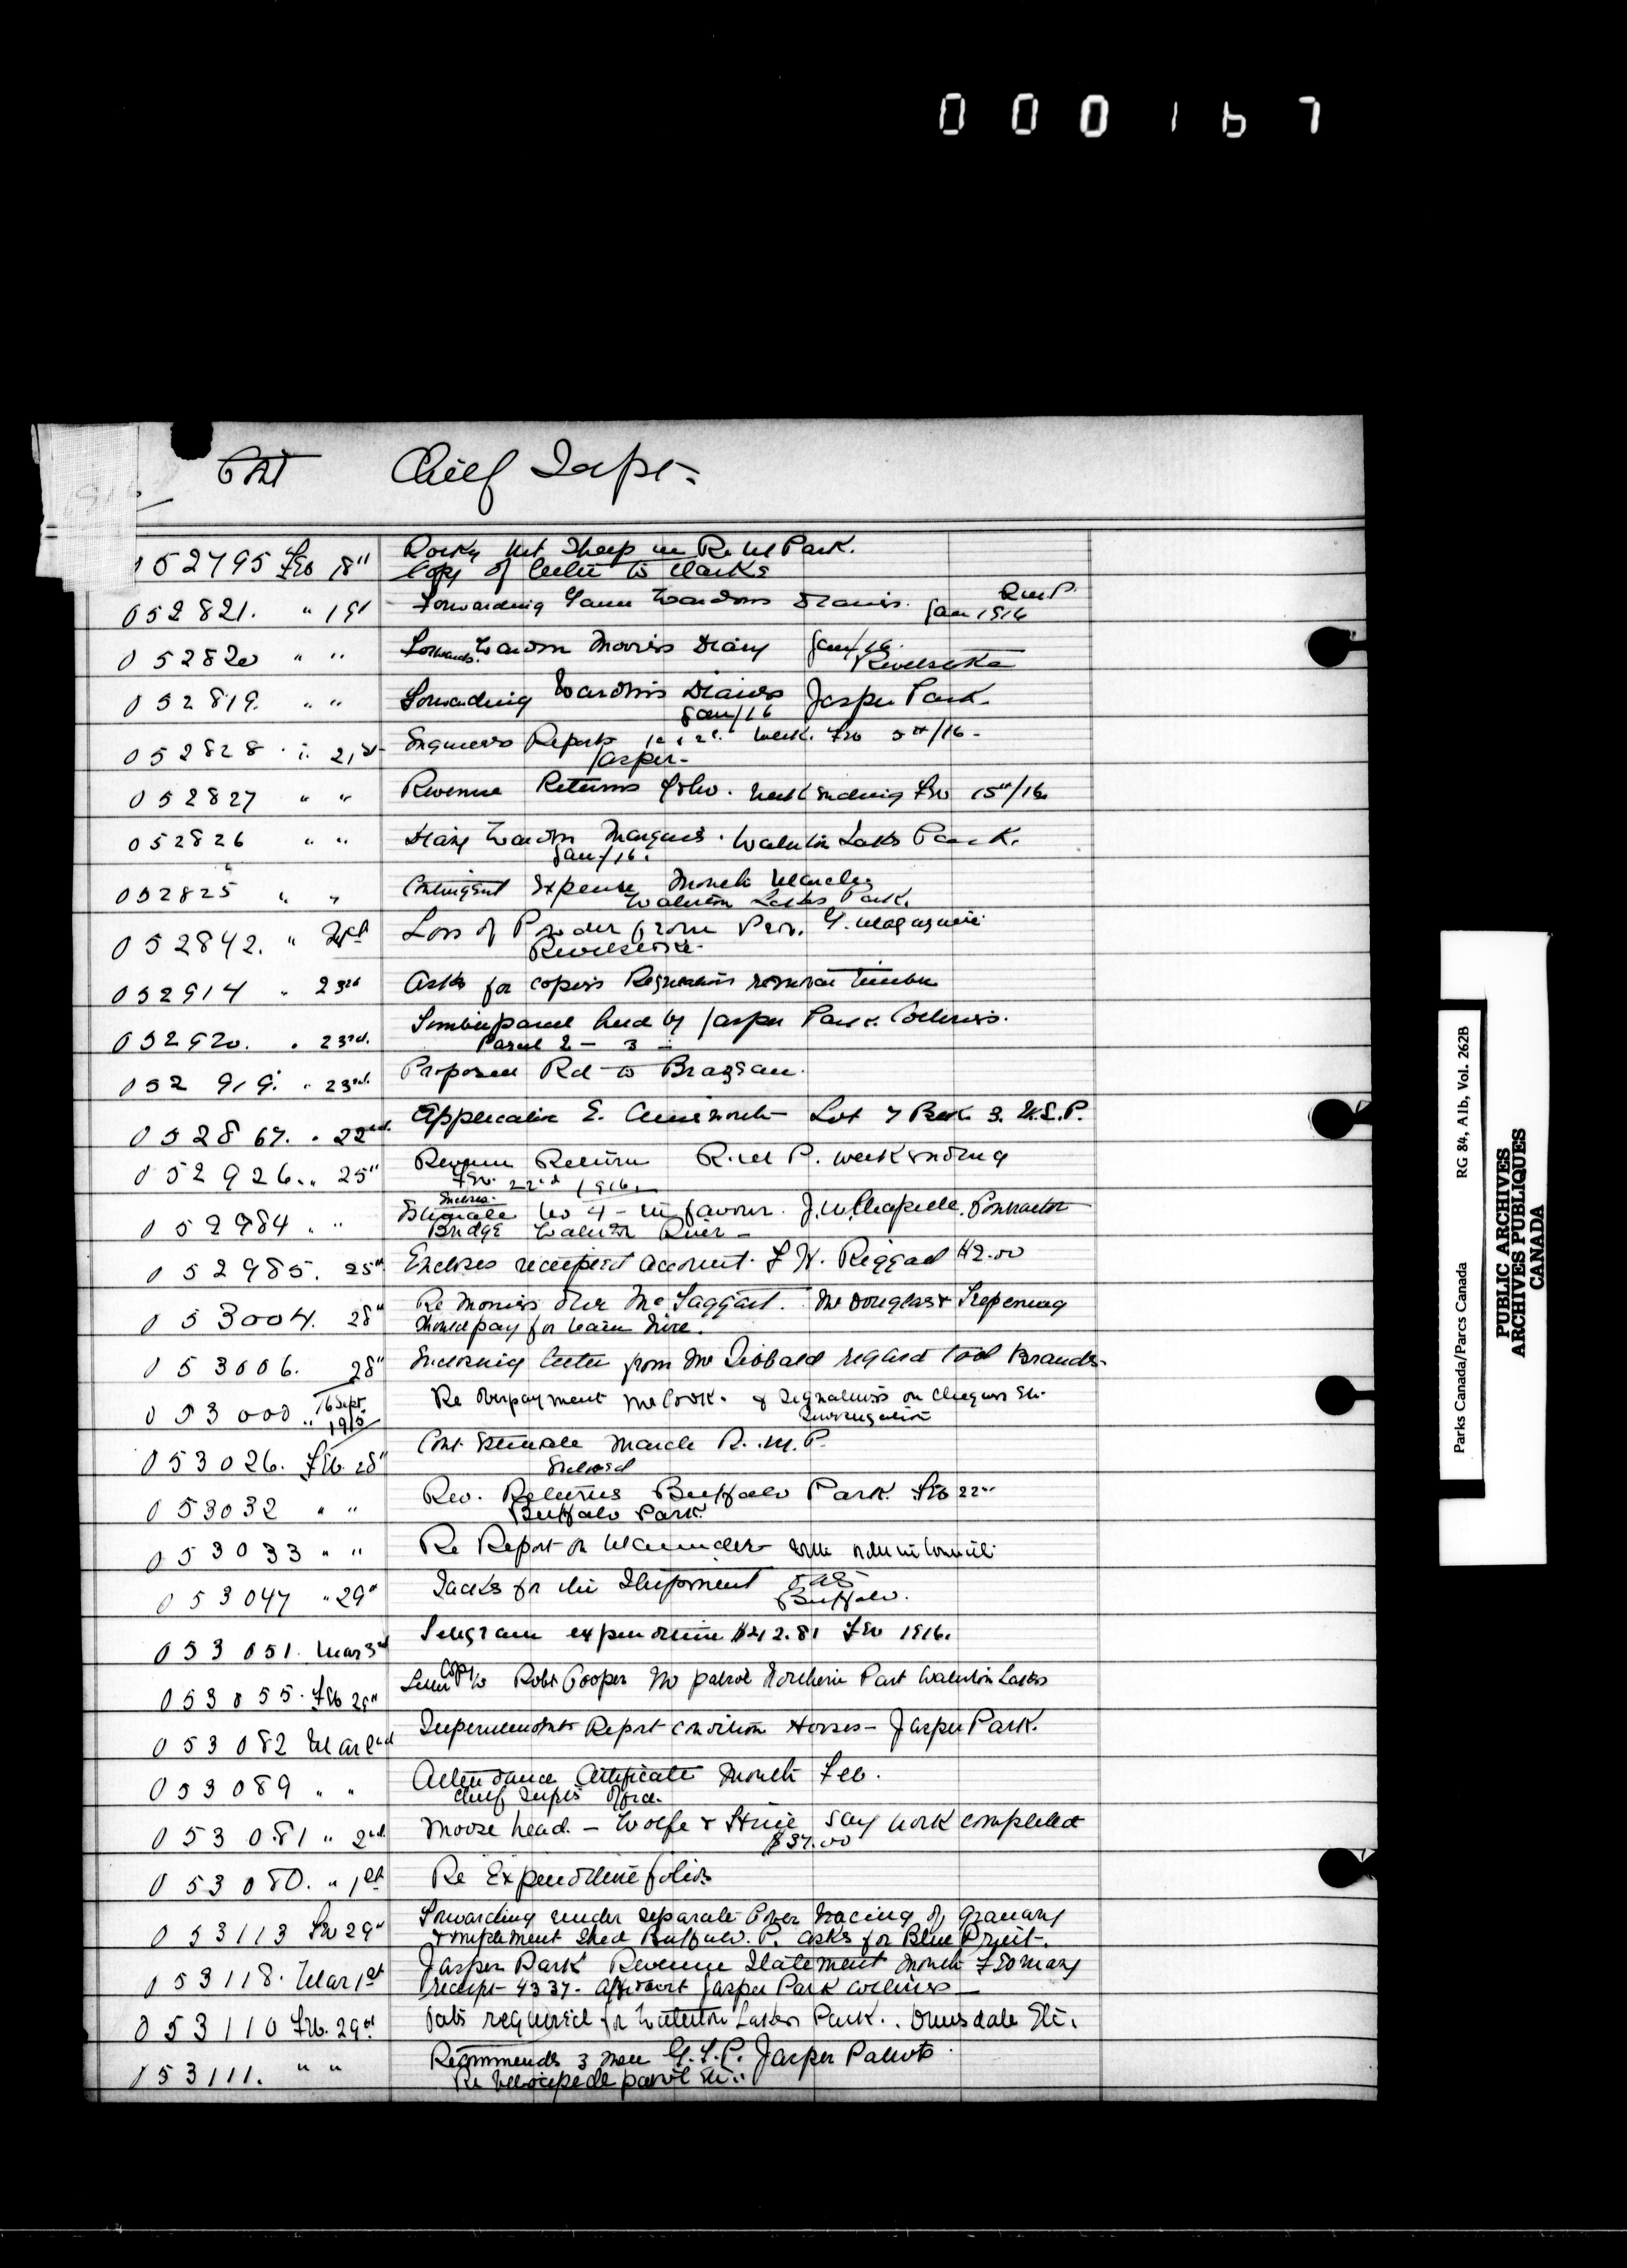 000167
Chief Supt-
052795 Feb 18" Rocky Mt Sheep in R. M Park.
Copy of letter to Clarke
052821. " 19" Forwarding Game Wardens Diaries. R.M.P.
Jan 1916
052820 " " Forwards. Warden Morris Diary Jan/16.
Revelstoke
052819. " " Forwarding Wardens Diaries Jasper Park.
Jan/16
052828 " 21st Engineers Reports week Feb 5th/16-
Jasper-
052827 " " Revenue Returns week ending Feb 15th/16
052826 " " Diary Warden Marquis. Waterton Lakes Park.
Jan/16.
052825 " " Contingent Expense Month March
Waterton Lakes Park.
052842. " Loss of Powder from Magazine
Revelstoke-
052914 " 23rd Asks for copies Regulations removal timber
052920. " 23rd. Timber parcel held by Jasper Park Collieries.
Parcel 2 - 3 -
052919. " 23rd. Proposed Rd to Brazeau.
052867. " 22nd. Application E. Lot 7 Blk 3. W.L.P.
052926. " 25" Revenue Return R. M P. week ending
Feb. 22nd 1916.
052984 " " Encloses. Estimate No 4 - in favour J.W. Chapelle. Contractor
Bridge Waterton River -
052985. 25th Encloses receipted account. F H. Riggall $2.00
053004. 28" Re Monies Over McTaggart. Mr Douglas &
should pay for team hire.
053006. 28" Enclosing letter from Mr Sibbald regard tool Brands-
053000 " 16 Sept. 1915 Re Overpayment McCook. & Signatures on cheques Etc.
Investigation
053026. Feb. 28" Cont Estimate March R. M. P.
Enclosed
053032 " " Rev. Returns Buffalo Park. Feb 22nd
Buffalo Park.
053033 " " Re Report on with order in Council
053047 " 29" Sacks for the Shipment Oats
Buffalo.
053051. Mar 3rd Telegram expenditure $212.81 Feb 1916.
053055. Feb 28" Letter Copy to Robt Cooper to patrol Northern Part Waterton Lakes
053082 Mar 2nd Superintendents Report condition Horses - Jasper Park.
053089 " " Attendance Certificate Month Feb.
Chief Supt's Office.
053081 " 2nd. Moose head. - Wolfe & Stric say work completed
$37.00
053080. " 1st Re Expenditure folios
053113 Feb 29" Forwarding under separate Cover tracing of Granary
& implement shed Buffalo. P. asks for Blue Print.
053118. Mar 1st Jasper Park Revenue Statement Month February
receipt- 4337- Affidavit Jasper Park Collieries -
053110 Feb. 29th. Oats required for Waterton Lakes Park. Etc.
053111. " " Recommends 3 men G.T.P. Jasper Patrols
Re Velocipede patrol Etc.
Parks Canada/Parcs Canada RG 84, A1b, Vol. 262B
PUBLIC ARCHIVES
ARCHIVES PUBLIQUES
CANADA